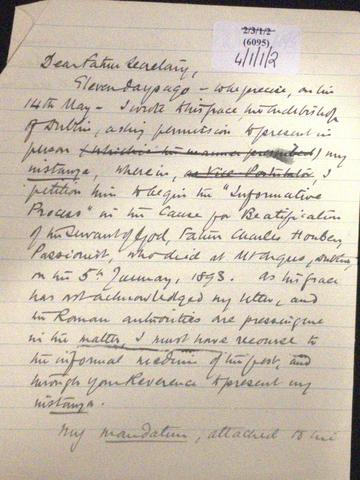 2/3/1/2
(6095)
4/1/1/2
Dear Father Secretary,
Eleven days ago – to be precise, on the
14th May – I wrote to his Grace the Archbishop
of Dublin, asking permission to present in
person (which is the manner prescribed) my
instanza, wherein, as Vice Postulator, I
petition him to begin the "Informative
Process" in the Cause for Beatification
of the Servant of God, Father Charles Houben,
Passionist, who died at Mt Argus, Dublin,
on the 5th January, 1893. As his Grace
has not acknowledged my letter, and
the Roman authorities are pressing me
in the matter, I must have recourse to
the informal medium of the post, and
through your Reverence to present my
instanza.
My mandatum, attached to the